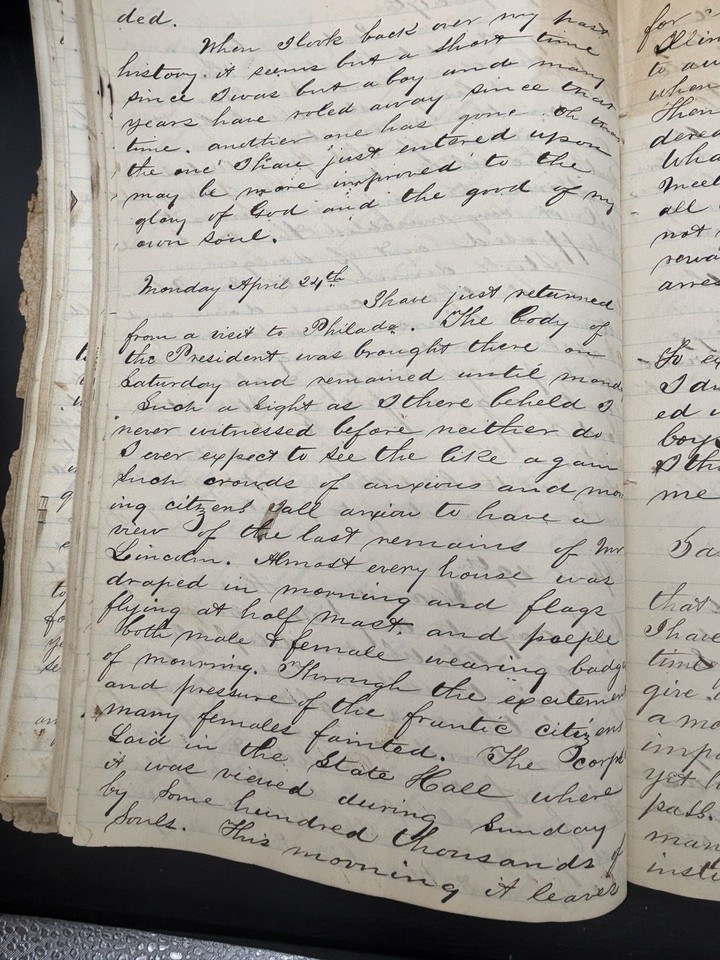 ded.
When I look back over my past
history. it seems but a short time
since I was but a boy and many
years have roled away since that
time. another one has gone. Oh that
the one I have just entered upon
may be more improved to the
glory of God and the good of my
own soul.
Monday April 24th I have just returned
from a visit to Philada. The body of
the President was brought there on
Saturday and remained until mond
Such a Sight as I there beheld I
never witnessed before neither do
I ever expect to see the like again
Such crowds of anxious and mou
ing citizens all anxiou to have a
view of the last remains of Mr
Lincoln. Almost every house was
draped in morning and flags
flying at half mast. and paeple
both male & female wearing badg
of mourning. Through the excitemen
and pressure of the frantic citizens
many females fainted. The corps
Laid in the State Hall where
it was viewed during Sunday
by Some hundred thousands of
Souls. This morning it leaves
for
to
when
Then
dered
Wha
meet
all
not
rewa
arres
To ex
I du
ed
boys
I th
me
Sa
that
I have
time
give
a mo
impo
yet
pass.
man
inste